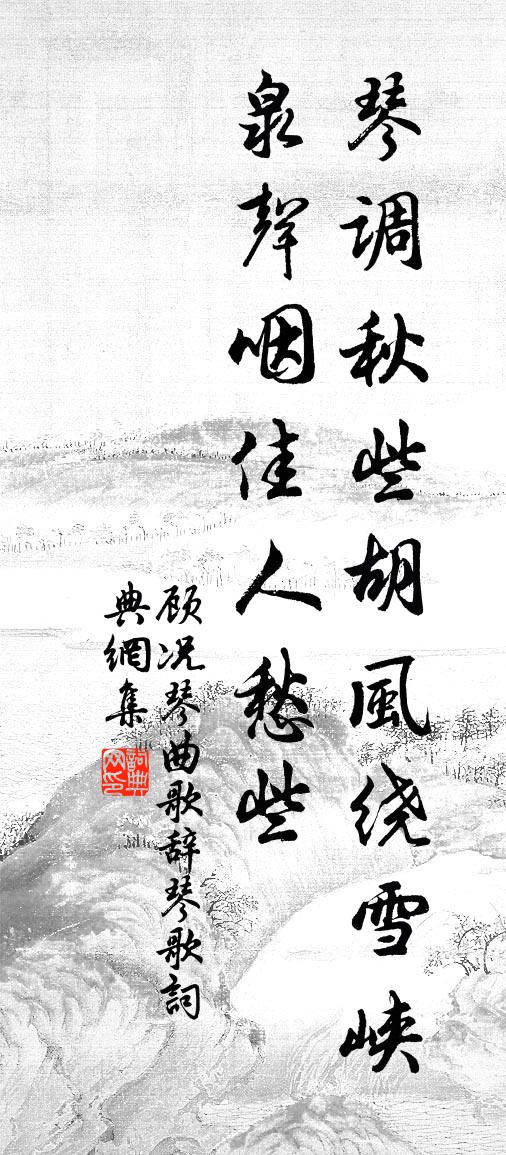 琴调秋些胡風绕雪峡
泉聲咽佳人愁些
顾况琴曲歌辞琴歌詞
典網集
詞典
网印